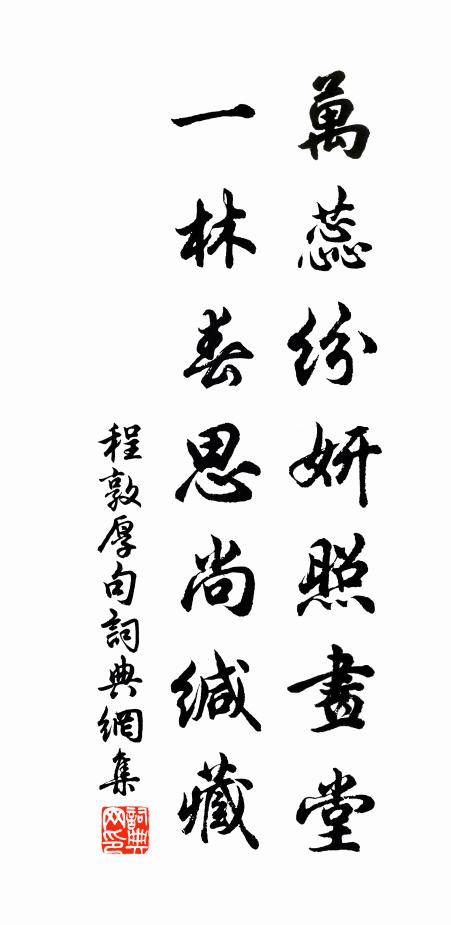 萬蕊紛妍照畫堂
一林春思尚緘藏
程敦厚句詞典網集
詞典网印